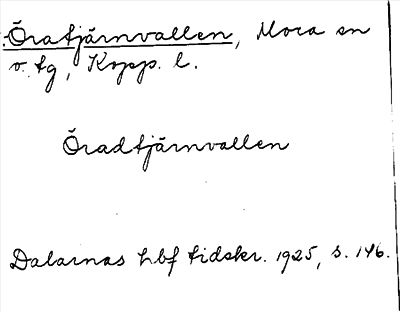 Öratjärnvallen, Mora sn
v. tg, Kopp. l.
Öradtjärnvallen
Dalarnas hbf tidskr. 1925, s. 146.